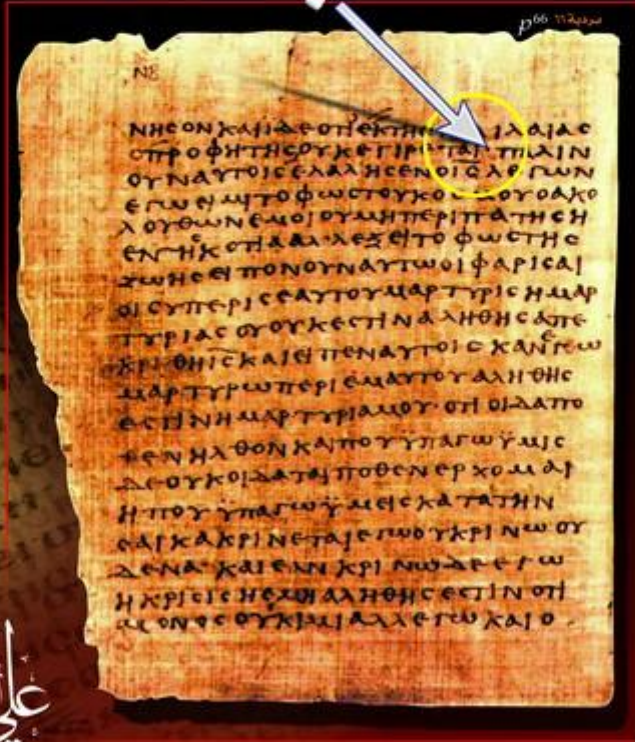 p66 بردية ٦٦
ΝΒ
ΝΗϹΟΝΚΑΙΪΔΕΟΤΙΕΚΤΗϹ ΙΛΑΙΑϹ
ΟΠΡΟΦΗΤΗϹΟΥΚΕΓΙΡΕΤΑΙ· ΠΑΛΙΝ
ΟΥΝΑΥΤΟΙϹΕΛΑΛΗϹΕΝΟΙϹΛΕΓΩΝ
ΕΓΩΕΙΜΙΤΟΦΩϹΤΟΥΚΟϹΜΟΥΟΑΚΟ
ΛΟΥΘΩΝΕΜΟΙΟΥΜΗΠΕΡΙΠΑΤΗϹΗ
ΕΝΤΗϹΚΟΤΙΑΑΛΛΕΞΕΙΤΟΦΩϹΤΗϹ
ΖΩΗϹΕΙΠΟΝΟΥΝΑΥΤΩΟΙΦΑΡΙϹΑΙ
ΟΙϹΥΠΕΡΙϹΕΑΥΤΟΥΜΑΡΤΥΡΙϹΗΜΑΡ
ΤΥΡΙΑϹΟΥΟΥΚΕϹΤΙΝΑΛΗΘΗϹΑΠΕ
ΚΡΙΘΗΙϹΚΑΙΕΙΠΕΝΑΥΤΟΙϹΚΑΝΕΓΩ
ΜΑΡΤΥΡΩΠΕΡΙΕΜΑΥΤΟΥΑΛΗΘΗϹ
ΕϹΤΙΝΗΜΑΡΤΥΡΙΑΜΟΥ·ΟΤΙΟΙΔΑΠΟ
ΘΕΝΗΛΘΟΝΚΑΙΠΟΥΫΠΑΓΩΫΜΙϹ
ΔΕΟΥΚΟΙΔΑΤΑΙΠΟΘΕΝΕΡΧΟΜΑΙ
ΗΠΟΥΫΠΑΓΩΫΜΕΙϹΚΑΤΑΤΗΝ
ϹΑΡΚΑΚΡΙΝΕΤΑΙΕΓΩΟΥΚΡΙΝΩΟΥ
ΔΕΝΑ·ΚΑΙΕΑΝΚΡΙΝΩΔΕΕΓΩ
ΗΚΡΙϹΙϹΗΕΜΗΑΛΗΘΗϹΕϹΤΙΝΟΤΙ
ΜΟΝΟϹΟΥΚΙΜΙΑΛΛΕΓΩΚΑΙΟ
علي